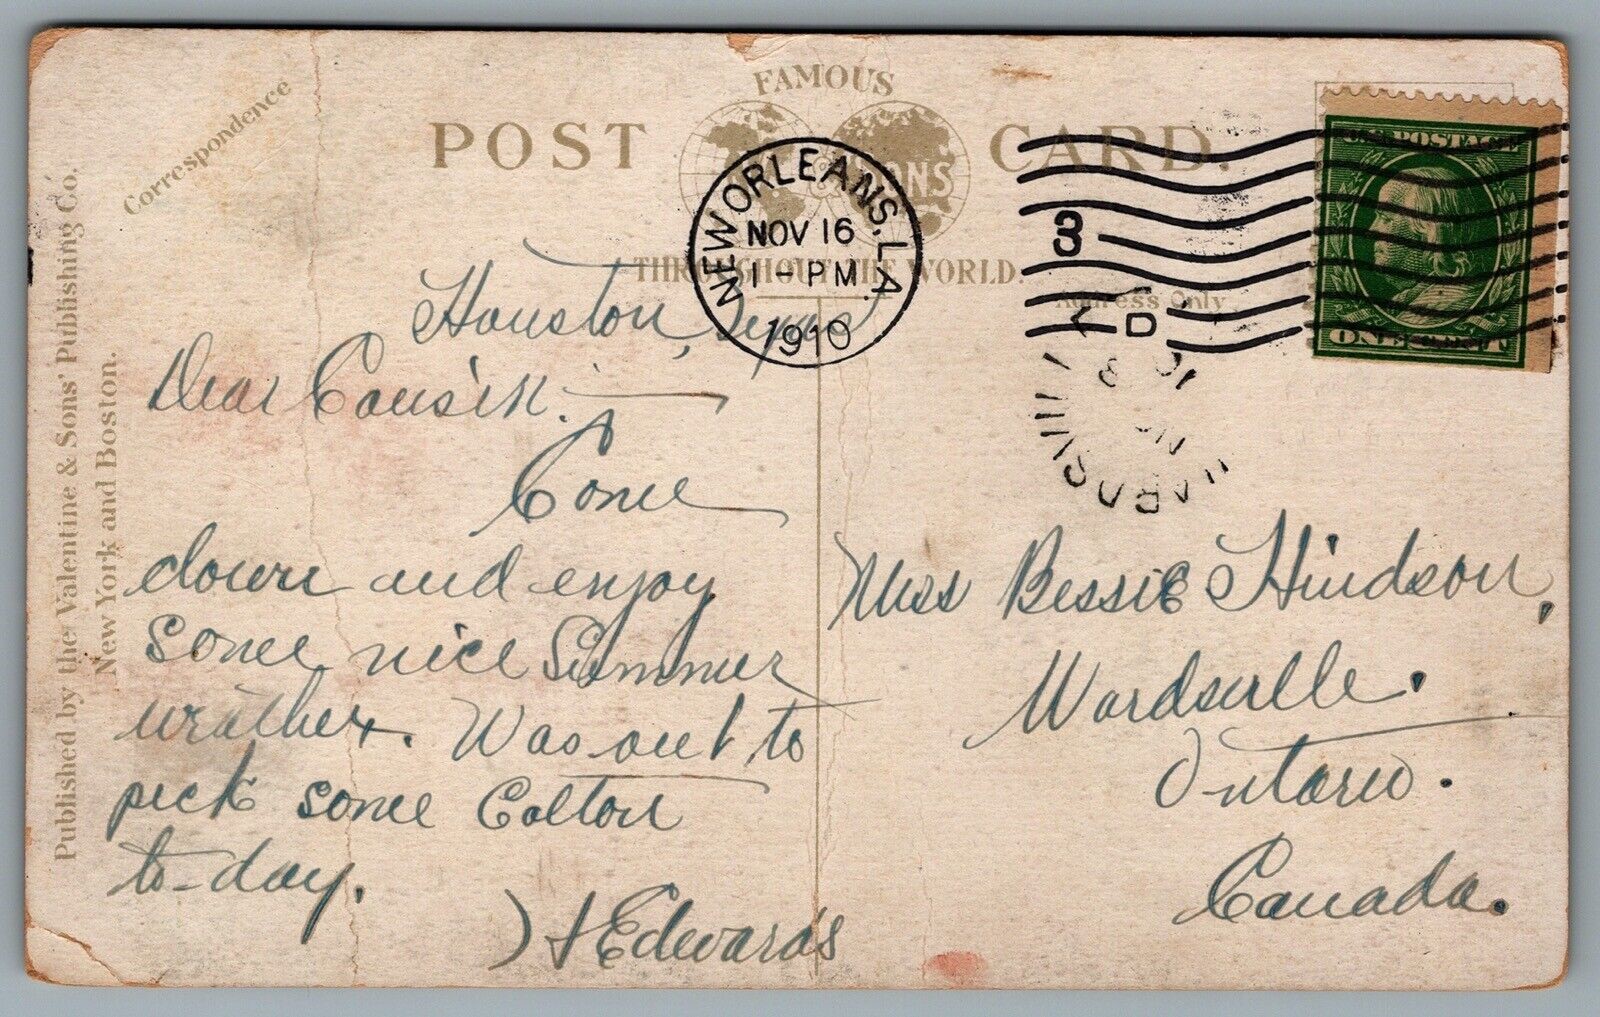 FAMOUS
POST CARD.
& SONS
THROUGHOUT THE WORLD.
Correspondence
Address Only
Published by the Valentine & Sons' Publishing Co.
New York and Boston.
NEW ORLEANS, LA.
NOV 16
1-PM
1910
3
D
U.S. POSTAGE
ONE CENT
WARDSVILLE
Houston, Texas
Dear Cousin.
Come
down and enjoy
some nice Summer
weather. Was out to
pick some Cotton
to-day.
H Edwards
Miss Bessie Hindson,
Wardsville.
Ontario.
Canada.